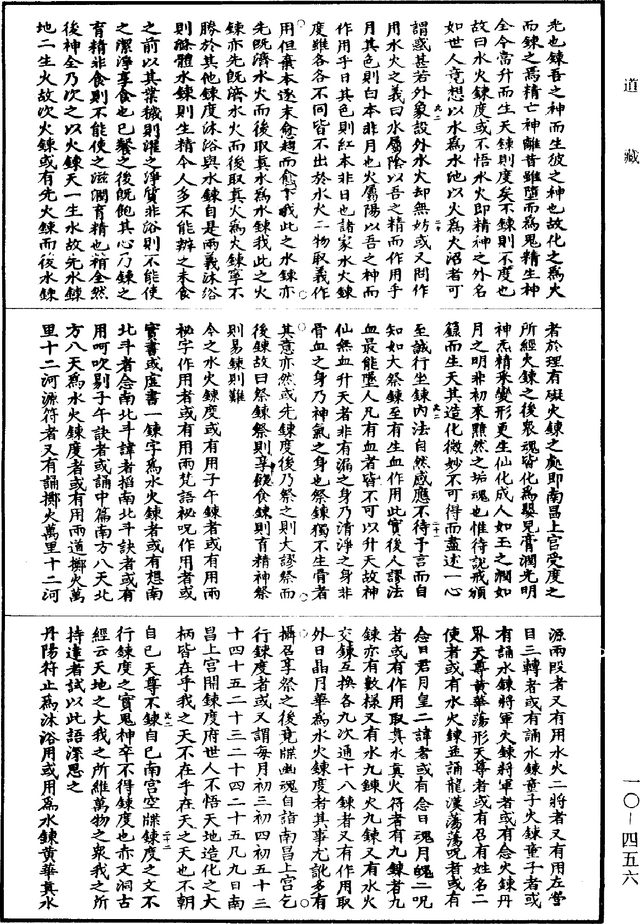 道藏
光也鍊吾之神而生彼之神也故化之為火
而鍊之焉精亡神離昔雖墮而為鬼精生神
全今當升而生天鍊則度矣不鍊則不度也
故曰水火鍊度或不悟水火即精神之外名
如世人竟想以水為水池以火為火沼者可
謂惑甚若外象設外水火却無妨或又問作
用水火之義曰水屬陰以吾之精而作用乎
月其色則曰本非月也火屬陽以吾之神而
作用乎日其色則紅本非日也諸家水火鍊
度雖各各不同皆不出於水火二物取義作
用但棄本逐末愈趨而愈下哉此之水鍊亦
先既濟水火而後取真水為水鍊我此之火
鍊亦先既濟水火而後取真火為火鍊寧不
勝於其他鍊度沐浴與水鍊自是兩義沐浴
則滌體水鍊則生精令人多不能辦之未食
之前以其業穢則濯之淨質非浴則不能使
之潔淨享食也已餐之後既飽其心乃鍊之
育精非食則不能使之滋潤育精也稍全然
後神全乃次之以火鍊天一生水故先水鍊
地二生火故次火鍊或有先火鍊而後水鍊
者於理有礙火鍊之處即南昌上宮受度之
所經火鍊之後眾魂皆化為嬰兒膏潤光明
神炁精采變形更生仙化成人如玉之潤如
月之明非初來黯然之垢魂也惟待說戒頒
籙而生天其造化微妙不可得而盡述一心
至誠行坐鍊內法自然感應不待予言而自
知如大祭鍊至有生血作用此實後人謬法
血最能墜人凡有血者皆不可以升天故神
仙無血升天者非有漏之身乃清淨之身非
骨血之身乃神氣之身也祭鍊獨不生骨者
其意亦然或先鍊度後乃祭之則大謬祭而
後鍊故曰祭鍊祭則享餟食鍊則育精神祭
則易鍊則難
今之水火鍊度或有用子午鍊者或有用兩
秘字作用者或有用兩梵語祕咒作用者或
實書或虛書一鍊字為水火鍊者或有想南
北斗者念南北斗諱者掐南北斗訣者或有
用呵吹剔子午訣者或誦中篇南方八天北
方八天為水火鍊度者或有用兩道擲火萬
里十二河源符者又有誦擲火萬里十二河
源兩段者又有用水火二將者又有用左營
目三轉者或有誦水鍊童子火鍊童子者或
有誦水鍊將軍火鍊將軍者或有念火鍊丹
界天尊黃華蕩形天尊者或有召有姓名二
使者或有水火鍊並誦龍漢蕩蕩咒者或有
念日君月皇二諱者或有念日魂月魄二咒
者或有作用取真水真火符者有九鍊者九
鍊亦有數樣又有水九鍊火九鍊又有水火
交鍊互換各九次通十八鍊者又有作用取
外日晶月華為水火鍊度者其事尤訛多有
攝召享祭之後竟牒幽魂自詣南昌上宮乞
行鍊度者或又謂每月初三初四初五十三
十四十五二十三二十四二十五凡九日南
昌上宮開鍊度府世人不悟天地造化之大
柄皆在乎我之天不在乎在天之天也不朝
自己天尊不鍊自己南宮空牒鍊度之文不
行鍊度之實鬼神卒不得鍊度也亦文洞古
經云天地之大我之所維萬物之眾我之所
持達者試以此語深思之
丹陽符止為沐浴用或用為水鍊黃華真水
一〇—四五六